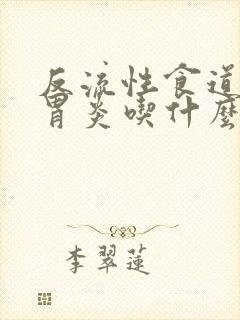 反流性食道
胃炎喫什麼
李翠蓮